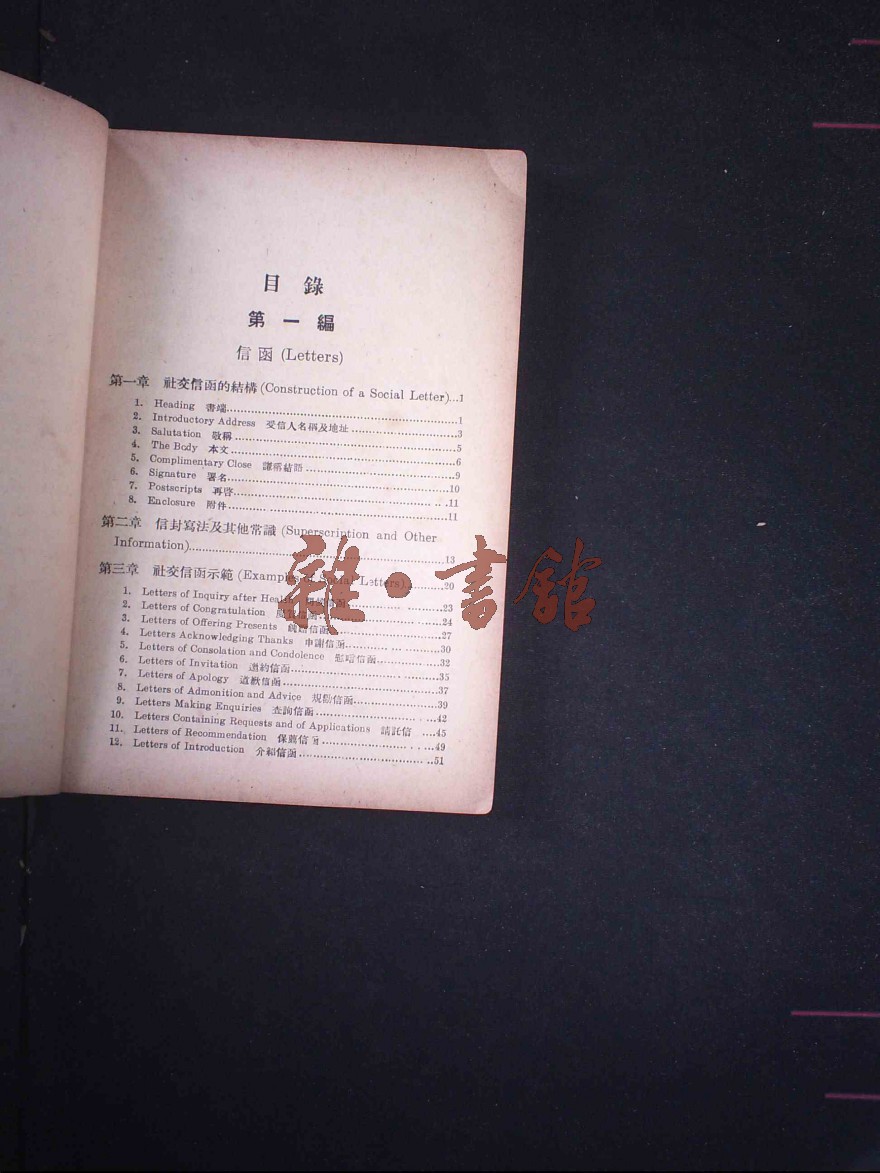 目錄
第一編
信函 (Letters)
第一章 社交信函的結構 (Construction of a Social Letter)...1
1. Heading 書端...1
2. Introductory Address 受信人名稱及地址...3
3. Salutation 敬稱...5
4. The Body 本文...6
5. Complimentary Close 謙稱結語...9
6. Signature 署名...10
7. Postscripts 再啓...11
8. Enclosure 附件...11
第二章 信封寫法及其他常識 (Superscription and Other
Information)...13
第三章 社交信函示範 (Examples of Social Letters)...20
1. Letters of Inquiry after Health 信函...23
2. Letters of Congratulation 慶賀信函...24
3. Letters of Offering Presents 信函...27
4. Letters Acknowledging Thanks 申謝信函...30
5. Letters of Consolation and Condolence 信函...32
6. Letters of Invitation 邀約信函...35
7. Letters of Apology 道歉信函...37
8. Letters of Admonition and Advice 規勸信函...39
9. Letters Making Enquiries 查詢信函...42
10. Letters Containing Requests and of Applications 請託信...45
11. Letters of Recommendation 保薦信函...49
12. Letters of Introduction 介紹信函...51
雜·書館